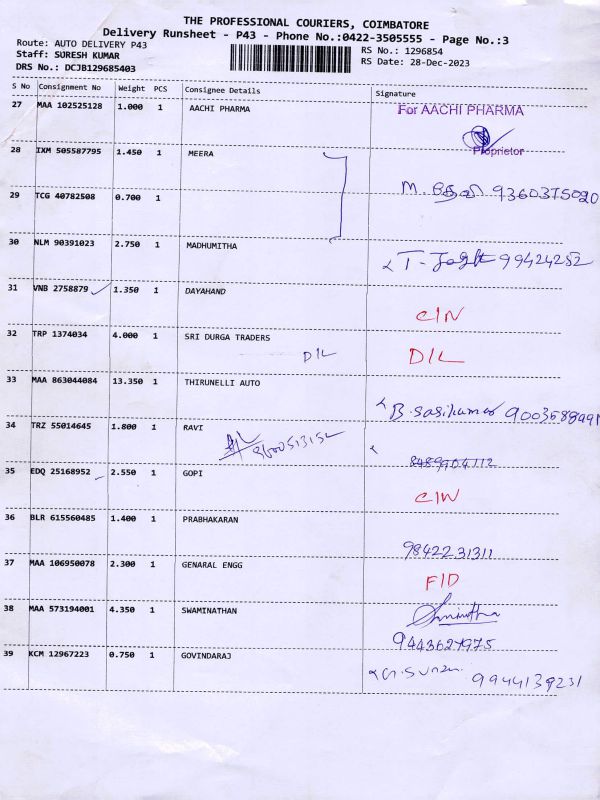 THE PROFESSIONAL COURIERS, COIMBATORE
Delivery Runsheet - P43 - Phone No.:0422-3505555 - Page No.:3
Route: AUTO DELIVERY P43
RS No.: 1296854
Staff: SURESH KUMAR
RS Date: 28-Dec-2023
DRS No.: DCJB129685403
S No Consignment No Weight PCS Consignee Details Signature
27 MAA 102525128 1.000 1 AACHI PHARMA For AACHI PHARMA
Proprietor
28 IXM 505587795 1.450 1 MEERA
M. தேவி 9360375020
29 TCG 40782508 0.700 1
30 NLM 90391023 2.750 1 MADHUMITHA
99424252
31 VNB 2758879 1.350 1 DAYAHAND
C/N
32 TRP 1374034 4.000 1 SRI DURGA TRADERS
D/L D/L
33 MAA 863044084 13.350 1 THIRUNELLI AUTO
B. Sasikumar
34 TRZ 55014645 1.800 1 RAVI
8489904112
35 EDQ 25168952 2.550 1 GOPI
C/N
36 BLR 615560485 1.400 1 PRABHAKARAN
9842231311
37 MAA 106950078 2.300 1 GENARAL ENGG
F/D
38 MAA 573194001 4.350 1 SWAMINATHAN
9443627975
39 KCM 12967223 0.750 1 GOVINDARAJ
9944139231